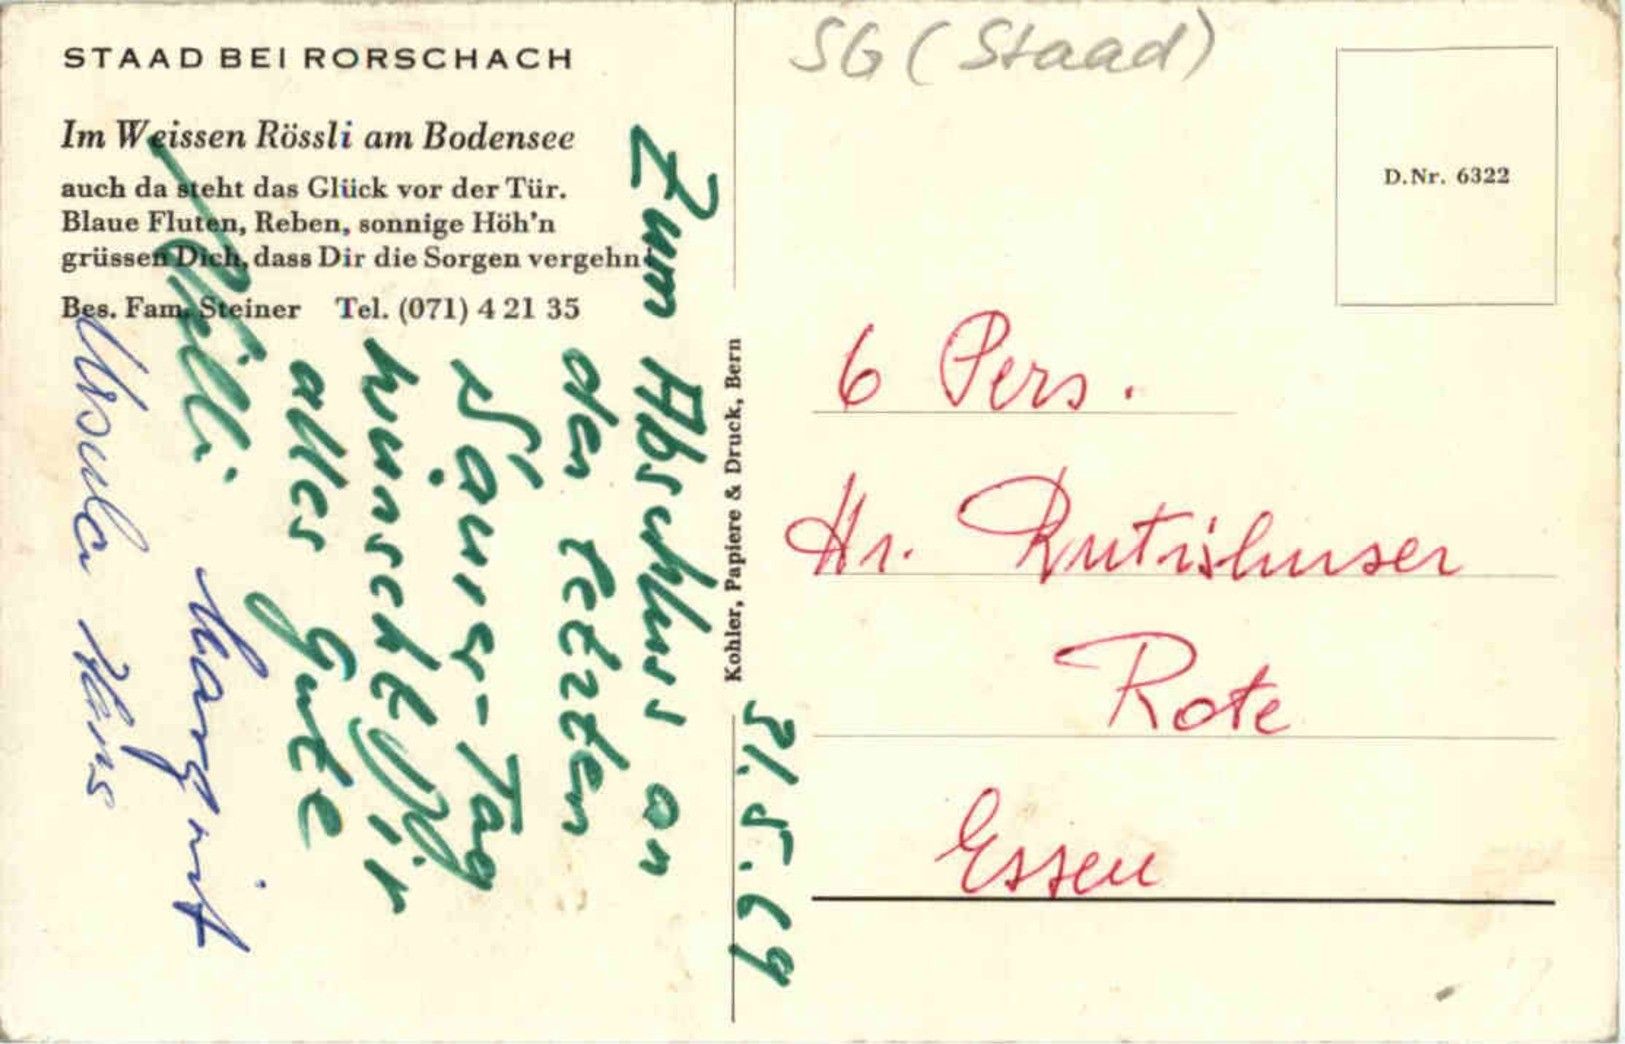 STAAD BEI RORSCHACH
Im Weissen Rössli am Bodensee
auch da steht das Glück vor der Tür.
Blaue Fluten, Reben, sonnige Höh'n
grüssen Dich, dass Dir die Sorgen vergehn
Bes. Fam. Steiner Tel. (071) 4 21 35
31.5.69
Zum Abschluss an
den letzten
Sauser-Tag
wünscht Dir
alles Gute
Willi
Margrit
Ursula Hans
Kohler, Papiere & Druck, Bern
SG (Staad)
D.Nr. 6322
6 Pers.
Hr. Rutishuser
Rote
Essen